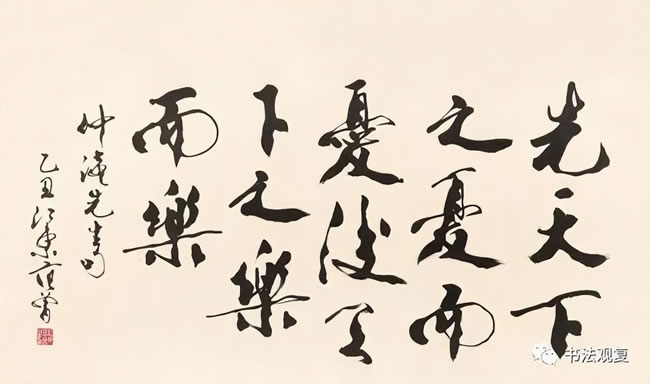 先天下
之憂而
憂後天
下之樂
而樂
仲淹先生句
乙丑江東范曾
书法观复